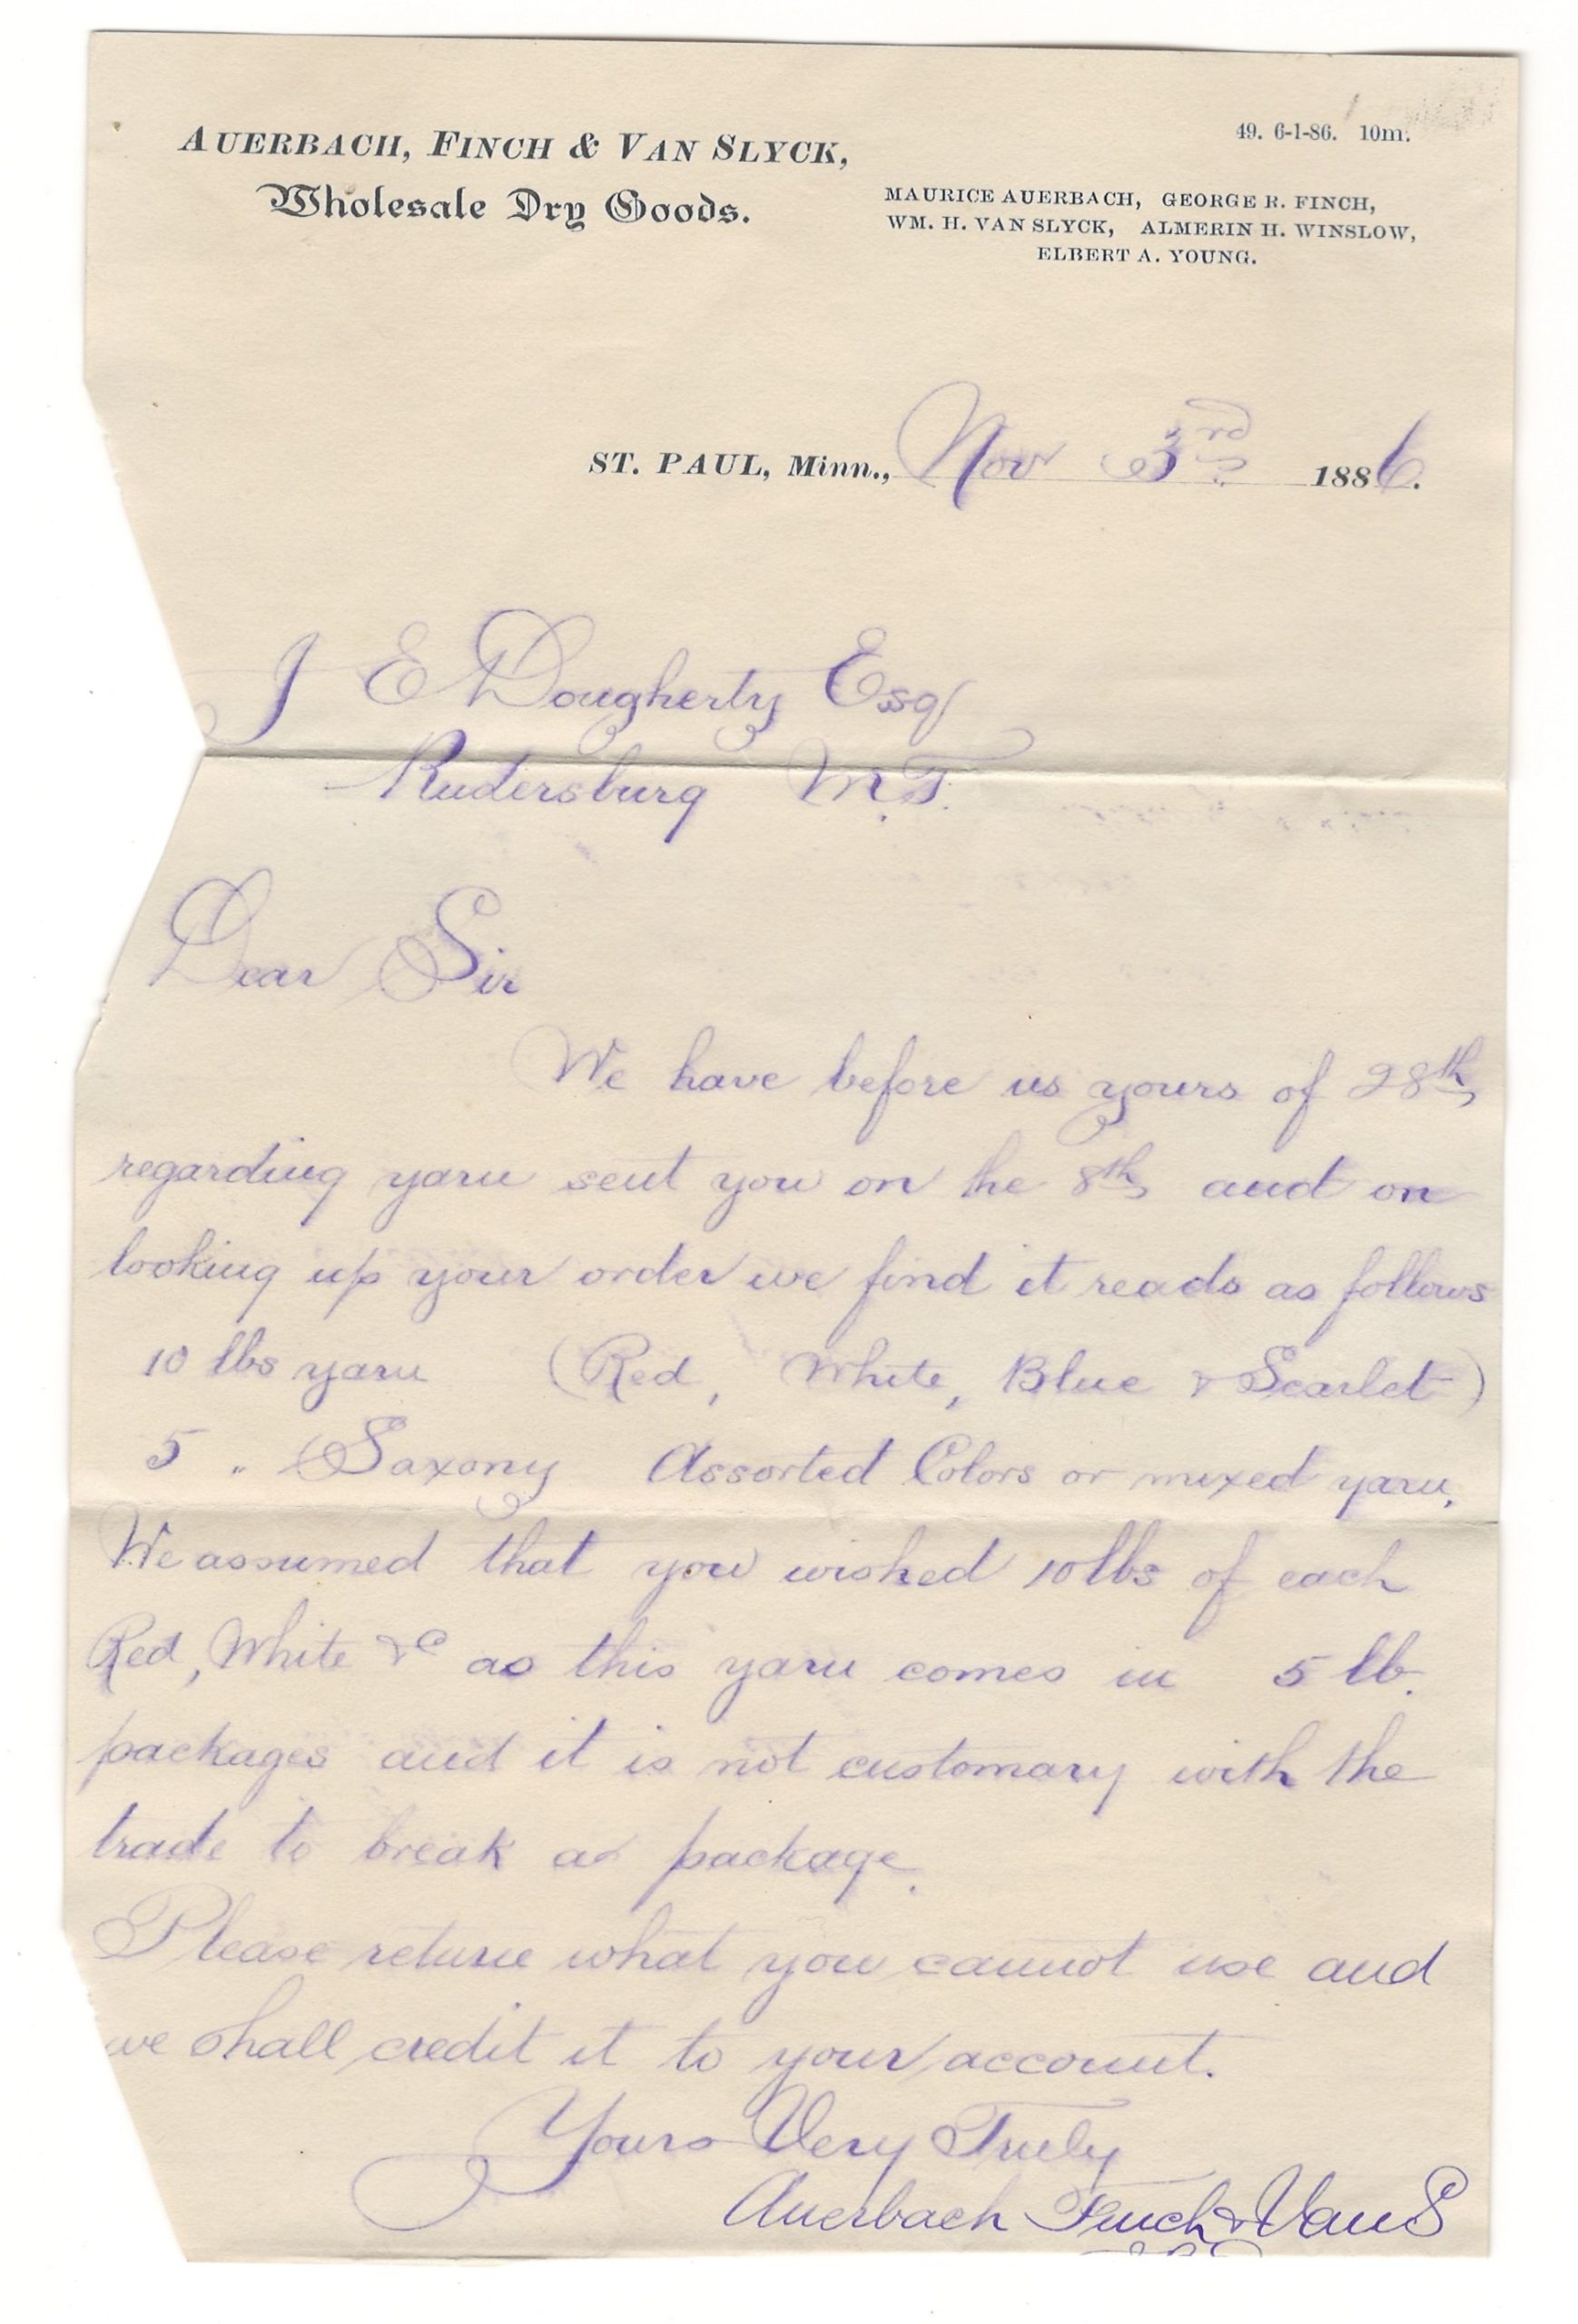 AUERBACH, FINCH & VAN SLYCK,
Wholesale Dry Goods.
49. 6-1-86. 10m.
MAURICE AUERBACH, GEORGE R. FINCH,
WM. H. VAN SLYCK, ALMERIN H. WINSLOW,
ELBERT A. YOUNG.
ST. PAUL, Minn., Nov 3rd 1886.
J E Dougherty Esq
Rudersburg M.T.
Dear Sir
We have before us yours of 28th
regarding yarn sent you on the 8th and on
looking up your order we find it reads as follows
10 lbs yarn (Red, White, Blue & Scarlet)
5 " Saxony Assorted Colors or mixed yarn.
We assumed that you wished 10lbs of each
Red, White &c as this yarn comes in 5 lb.
packages and it is not customary with the
trade to break a package.
Please return what you cannot use and
we shall credit it to your account.
Yours Very Truly
Auerbach Finch & Van S